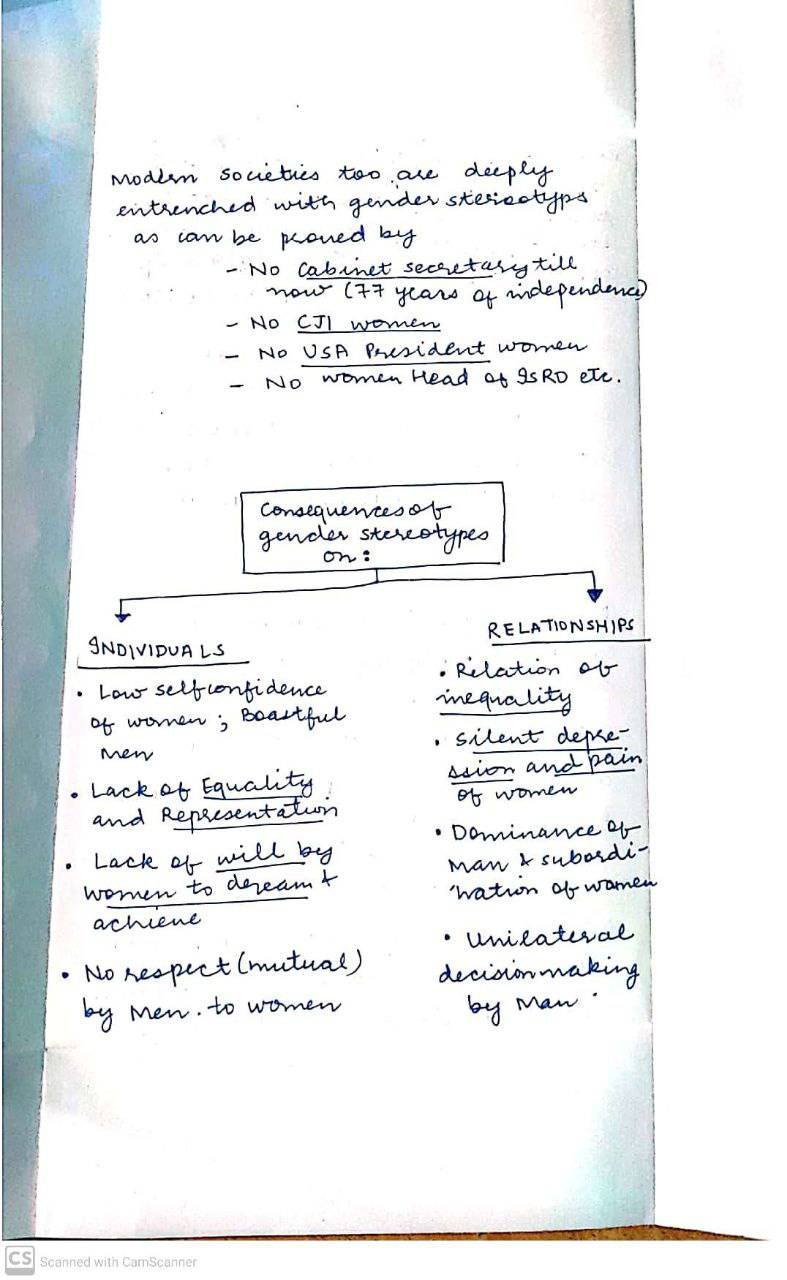 Modern societies too are deeply
entrenched with gender stereotyps
as can be proved by
- No Cabinet secretary till
now (77 years of independence)
- No CJI women
- No USA President women
- No women Head of ISRO etc.
Consequences of
gender stereotypes
on :
INDIVIDUALS
• Low self confidence
of women ; Boastful
Men
• Lack of Equality
and Representation
• Lack of will by
women to deream &
achieve
• No respect (mutual)
by Men . to women
RELATIONSHIPS
• Relation of
inequality
• Silent depre-
ssion and pain
of women
• Dominance of
Man & subordi-
nation of women
• Unilateral
decision making
by Man .
CS Scanned with CamScanner